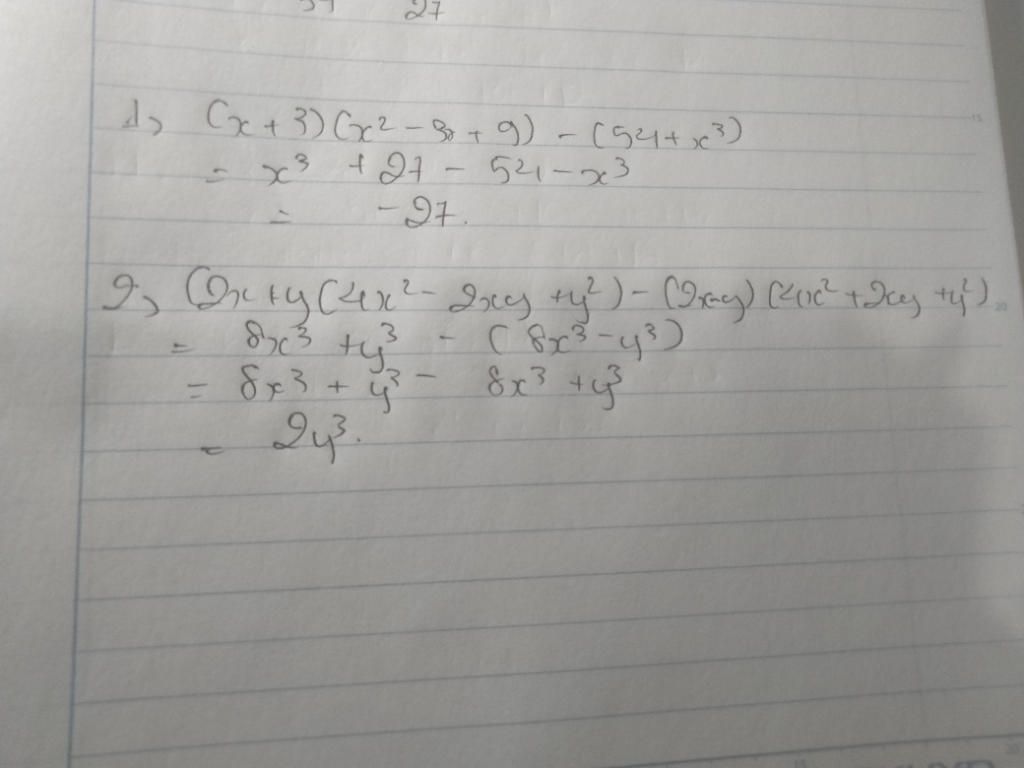 27
1, (x + 3)(x² - 3x + 9) - (54 + x³)
= x³ + 27 - 54 - x³
= - 27.
2, (2x + y (4x² - 2xy + y²) - (2x-y) (4x² + 2xy + y²)
= 8x³ + y³ - ( 8x³ - y³)
= 8x³ + y³ - 8x³ + y³
= 2y³.